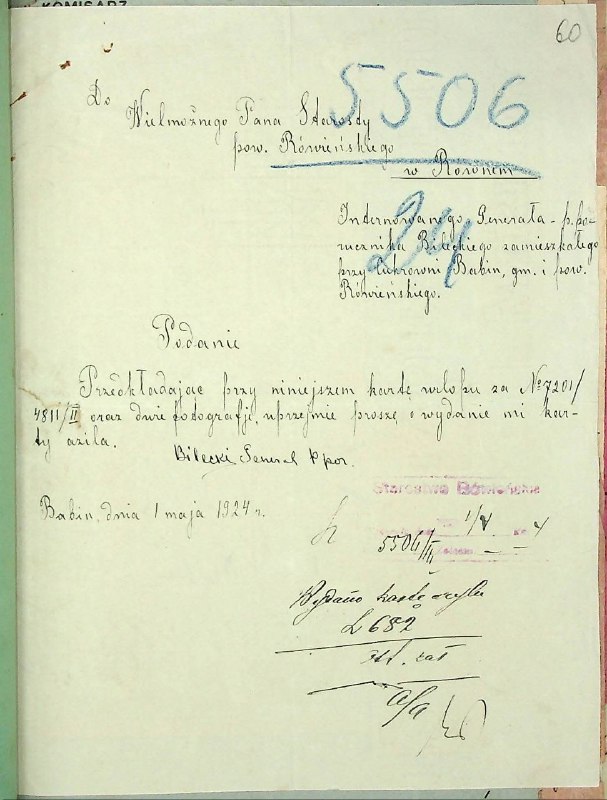 KOMISARZ
60
5506
Do
Wielmożnego Pana Starosty
pow. Rówieńskiego
w Rownem
24
Internowanego Generała - p. po-
rucznika Bileckiego zamieszkałego
przy Cukrowni Babin, gm. i pow.
Rówieńskiego.
Podanie
Przedkładając przy niniejszem kartę wilopu za № 7201/
4811/II oraz dwie fotografje, uprzejmie proszę o wydanie mi kar-
ty azila.
Bilecki Generał ppor.
Babin, dnia 1 maja 1924 r.
Starostwo Rówieńskie
1/V 4
5506/III
Wydano kartę azylu
L 682
a/a